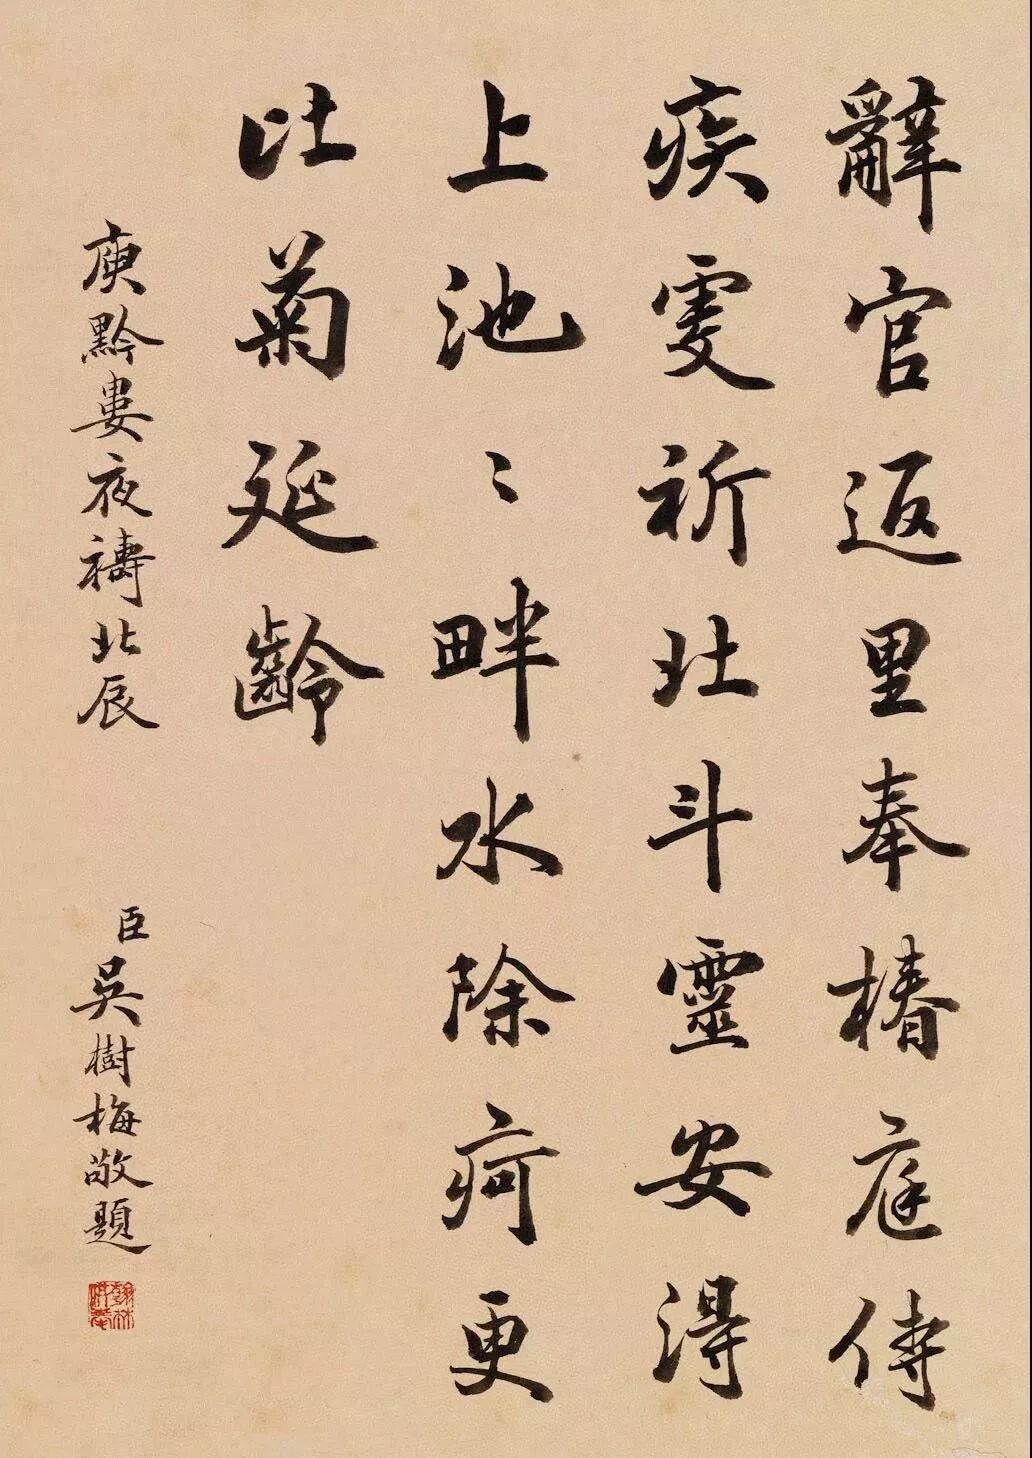 辭官返里奉椿庭侍
疾虔祈北斗靈安得
上池〻畔水除疴更
比菊延齡
庾黔婁夜禱北辰
臣吳樹梅敬題
翰林